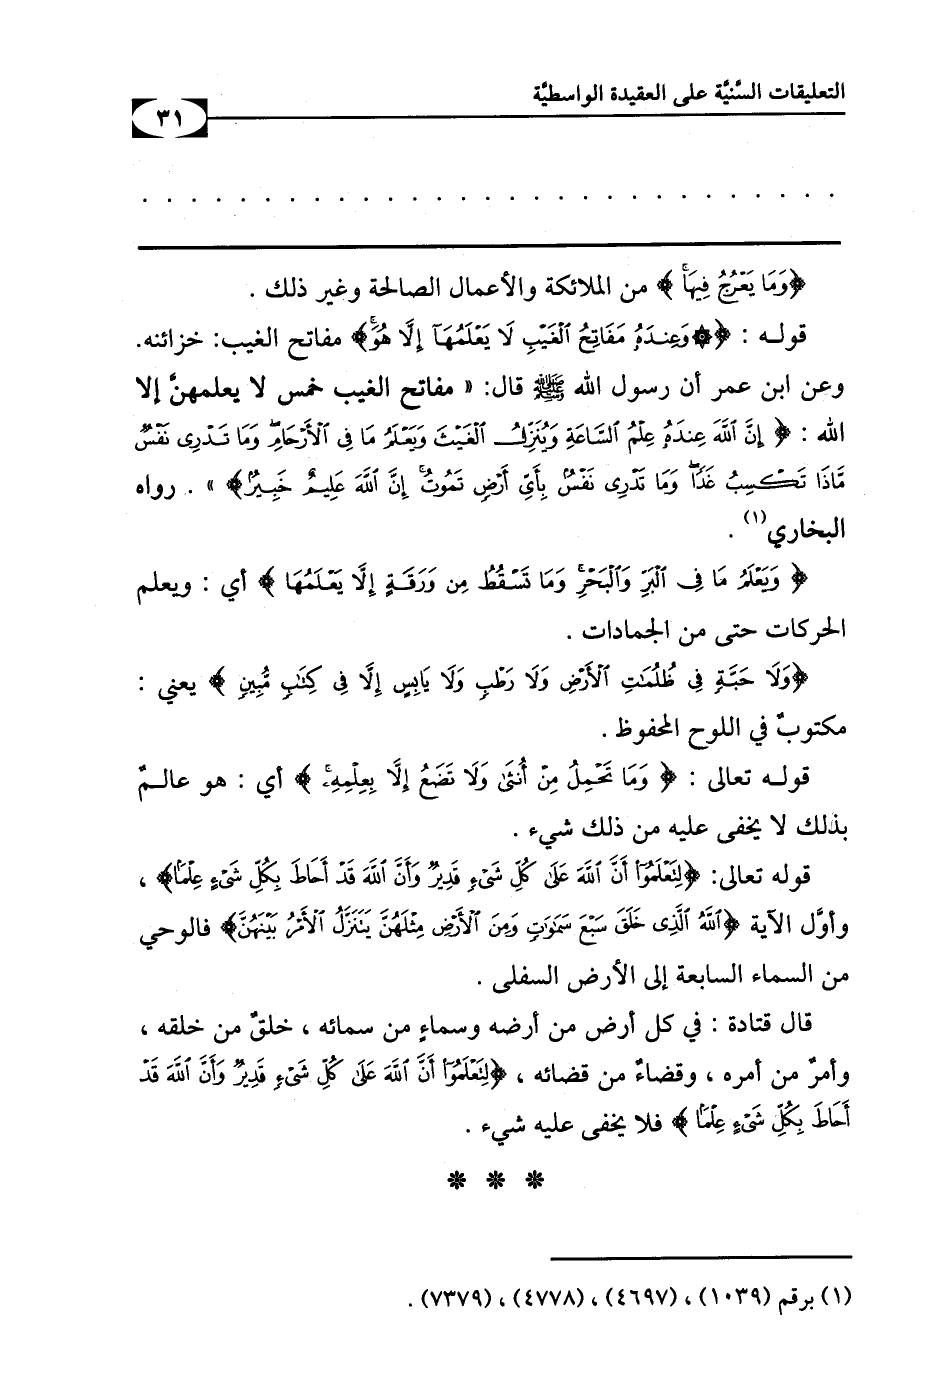 التعليقات السَّنيَّة على العقيدة الواسطيَّة
٣١
. . . . . . . . . . . . . . . . . . . . . . . . . . . . .
﴿وَمَا يَعْرُجُ فِيهَا﴾ من الملائكة والأعمال الصالحة وغير ذلك .
قوله : ﴿۞ وَعِندَهُ مَفَاتِحُ الْغَيْبِ لَا يَعْلَمُهَا إِلَّا هُوَ﴾ مفاتح الغيب: خزائنه.
وعن ابن عمر أن رسول الله ﷺ قال: « مفاتح الغيب خمس لا يعلمهنَّ إلا
الله : ﴿ إِنَّ اللَّهَ عِندَهُ عِلْمُ السَّاعَةِ وَيُنَزِّلُ الْغَيْثَ وَيَعْلَمُ مَا فِى الْأَرْحَامِ وَمَا تَدْرِى نَفْسٌ
مَّاذَا تَكْسِبُ غَدًا وَمَا تَدْرِى نَفْسٌ بِأَىِّ أَرْضٍ تَمُوتُ إِنَّ اللَّهَ عَلِيمٌ خَبِيرٌ﴾ » . رواه
البخاري(١) .
﴿ وَيَعْلَمُ مَا فِى الْبَرِّ وَالْبَحْرِ وَمَا تَسْقُطُ مِن وَرَقَةٍ إِلَّا يَعْلَمُهَا ﴾ أي : ويعلم
الحركات حتى من الجمادات .
﴿وَلَا حَبَّةٍ فِى ظُلُمَٰتِ الْأَرْضِ وَلَا رَطْبٍ وَلَا يَابِسٍ إِلَّا فِى كِتَٰبٍ مُّبِينٍ ﴾ يعني :
مكتوبٌ في اللوح المحفوظ .
قوله تعالى : ﴿ وَمَا تَحْمِلُ مِنْ أُنثَىٰ وَلَا تَضَعُ إِلَّا بِعِلْمِهِ ﴾ أي : هو عالمٌ
بذلك لا يخفى عليه من ذلك شيء .
قوله تعالى: ﴿لِتَعْلَمُوٓا أَنَّ اللَّهَ عَلَىٰ كُلِّ شَىْءٍ قَدِيرٌ وَأَنَّ اللَّهَ قَدْ أَحَاطَ بِكُلِّ شَىْءٍ عِلْمًا﴾ ،
وأوَّل الآية ﴿اللَّهُ الَّذِى خَلَقَ سَبْعَ سَمَٰوَٰتٍ وَمِنَ الْأَرْضِ مِثْلَهُنَّ يَتَنَزَّلُ الْأَمْرُ بَيْنَهُنَّ﴾ فالوحي
من السماء السابعة إلى الأرض السفلى .
قال قتادة : في كل أرض من أرضه وسماءٍ من سمائه ، خلقٌ من خلقه ،
وأمرٌ من أمره ، وقضاءٌ من قضائه ، ﴿لِتَعْلَمُوٓا أَنَّ اللَّهَ عَلَىٰ كُلِّ شَىْءٍ قَدِيرٌ وَأَنَّ اللَّهَ قَدْ
أَحَاطَ بِكُلِّ شَىْءٍ عِلْمًا ﴾ فلا يخفى عليه شيء .
* * *
(١) برقم (١٠٣٩) ، (٤٦٩٧) ، (٤٧٧٨) ، (٧٣٧٩) .